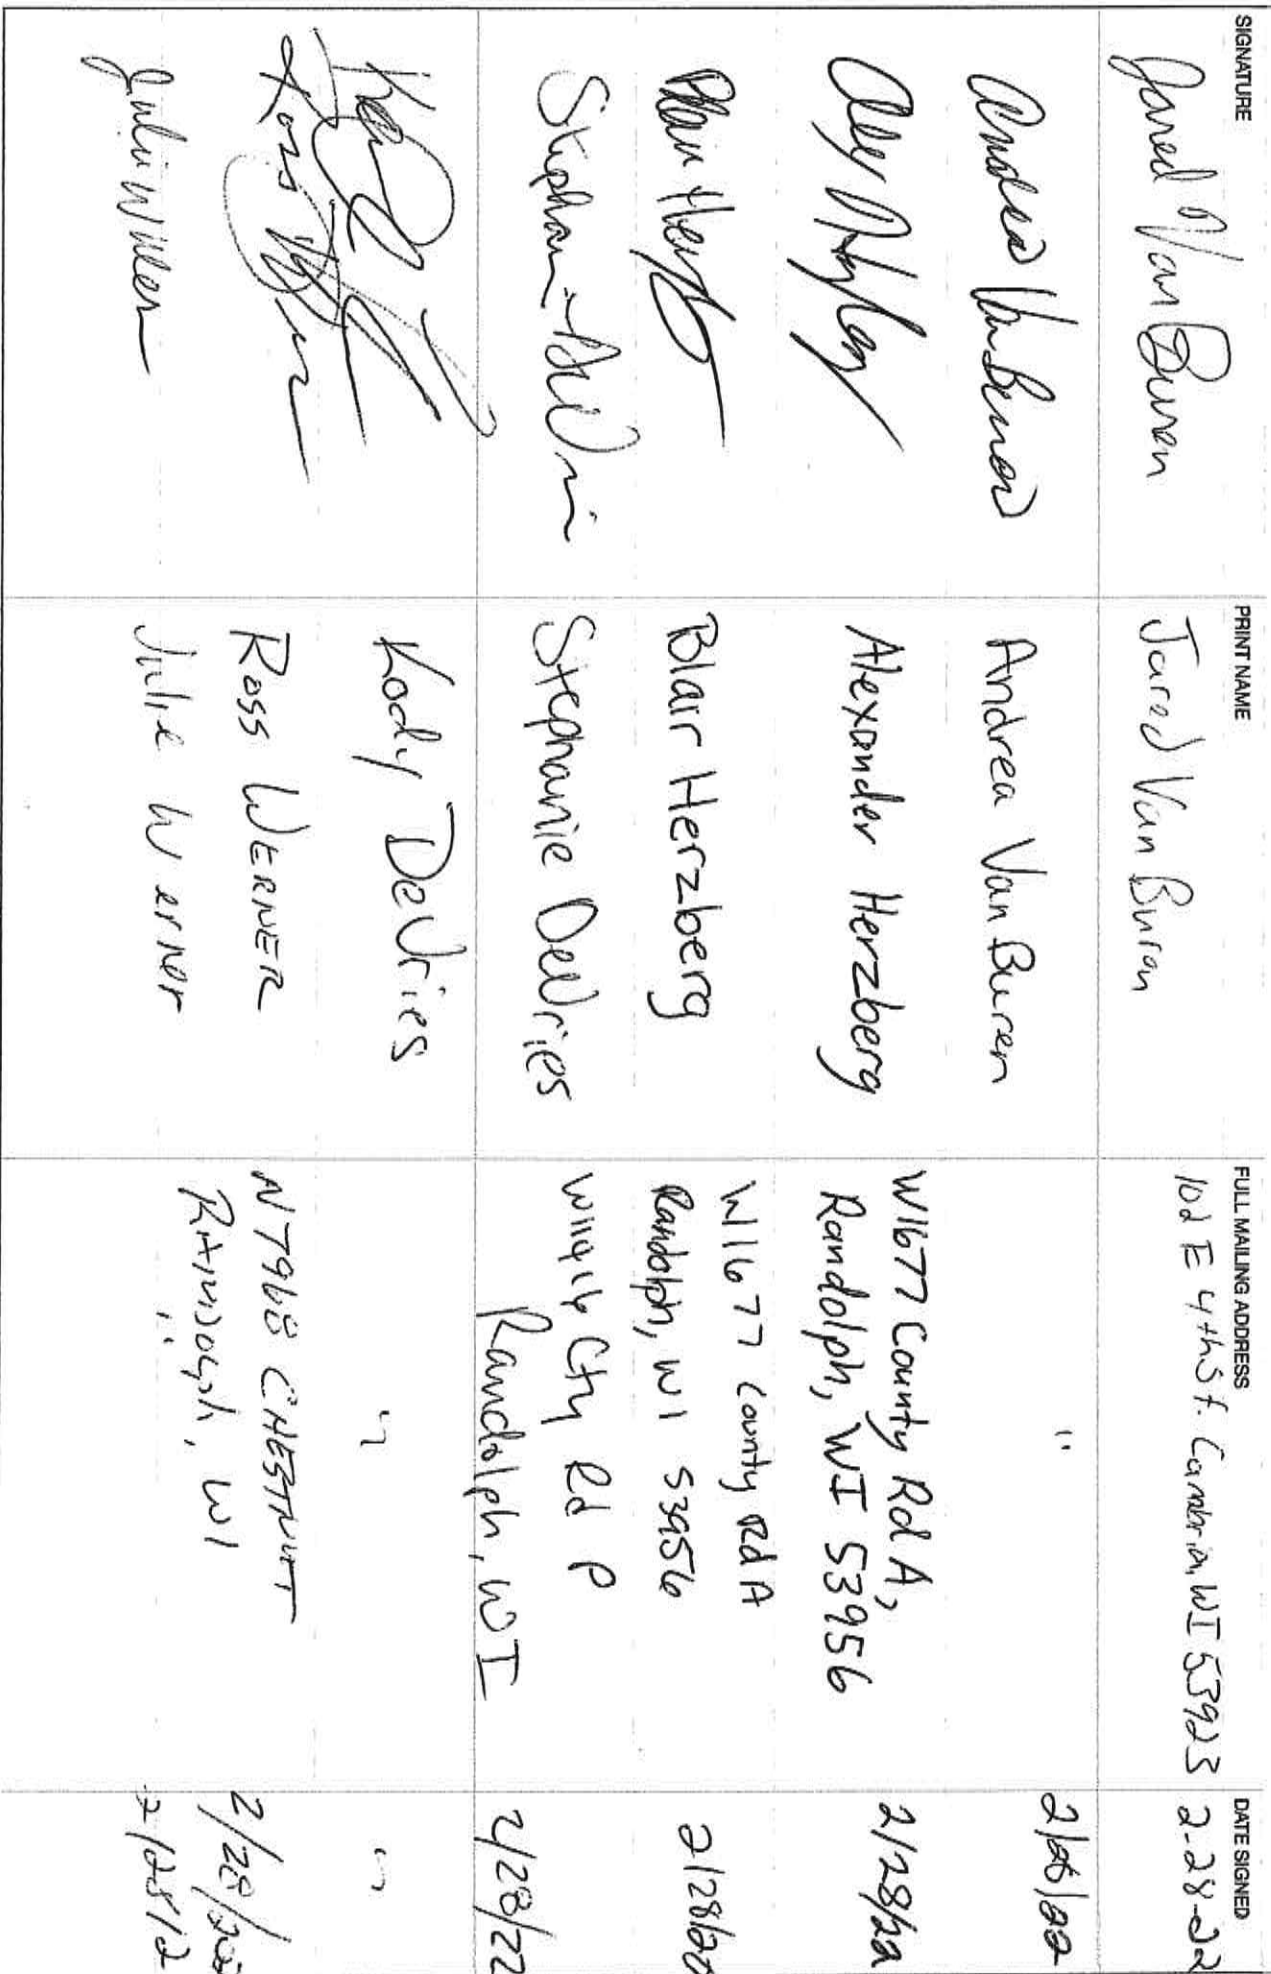 SIGNATURE PRINT NAME FULL MAILING ADDRESS DATE SIGNED
Jared Van Buren Jared Van Buren 102 E 4th St. Cambria, WI 53923 2-28-22
Andrea Van Buren Andrea Van Buren "
Alexander Herzberg W1677 County Rd A, 2/28/22
Randolph, WI 53956
Blair Herzberg Blair Herzberg W1677 County Rd A
Randolph, WI 53956
Stephanie DeVries Cty Rd P 2/28/22
Randolph, WI
Kody DeVries " "
Ross Werner Ross WERNER N7968 CHESTNUT
RANDOLPH, WI
Julie Werner Julie Werner " 2/28/2